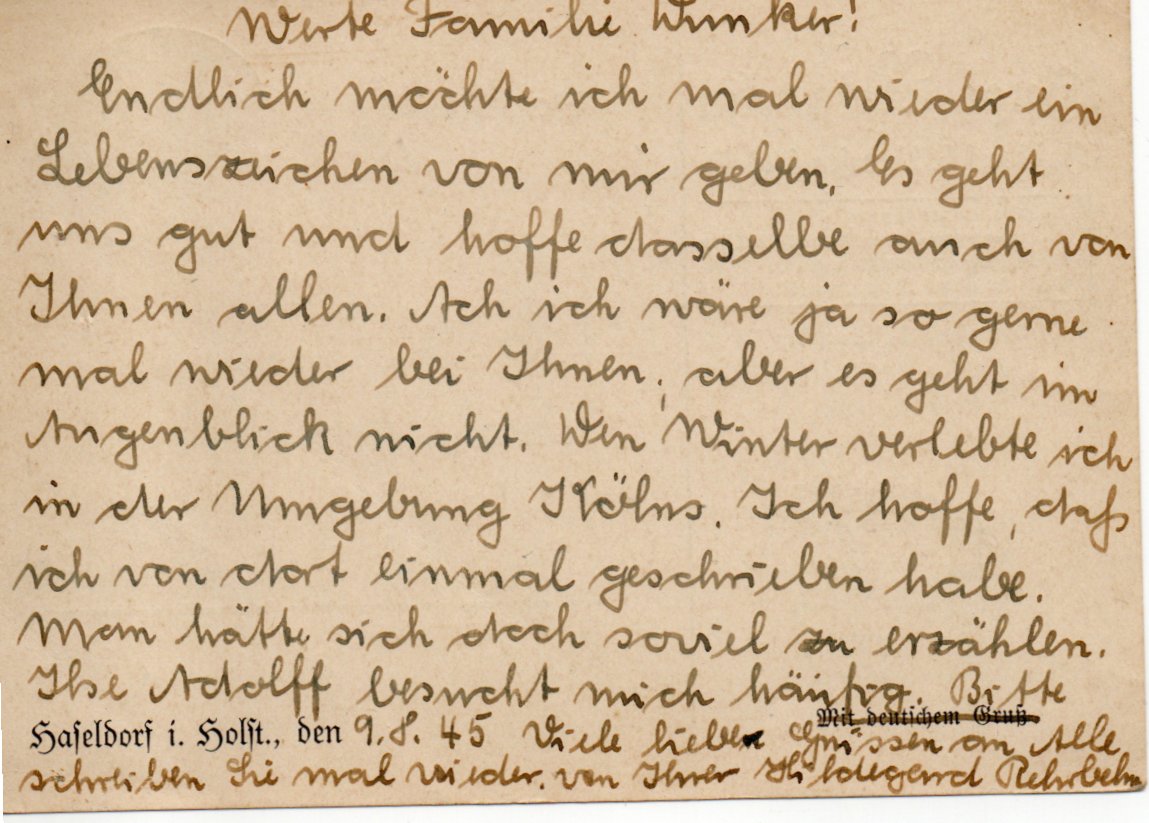 Werte Familie Dunker!
Endlich möchte ich mal wieder ein
Lebenszeichen von mir geben. Es geht
uns gut und hoffe dasselbe auch von
Ihnen allen. Ach ich wäre ja so gerne
mal wieder bei Ihnen, aber es geht im
Augenblick nicht. Den Winter verlebte ich
in der Umgebung Kölns. Ich hoffe, daß
ich von dort einmal geschrieben habe.
Man hätte sich doch soviel zu erzählen.
Ilse Adolff besucht mich häufig. Bitte
Mit deutschem Gruß
Haseldorf i. Holst., den 9.8.45 Viele liebe Grüssen an Alle
schreiben Sie mal wieder. von Ihrer Hildegard